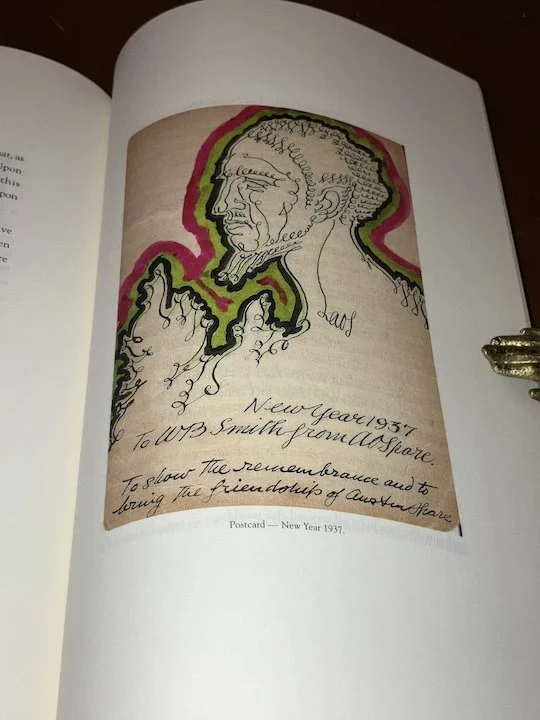 at, as
Upon
this
pon
ve
en
re
Laos
New Year 1937
To WB Smith from AO Spare.
To show the remembrance and to
bring the friendship of Austin Spare
Postcard — New Year 1937.